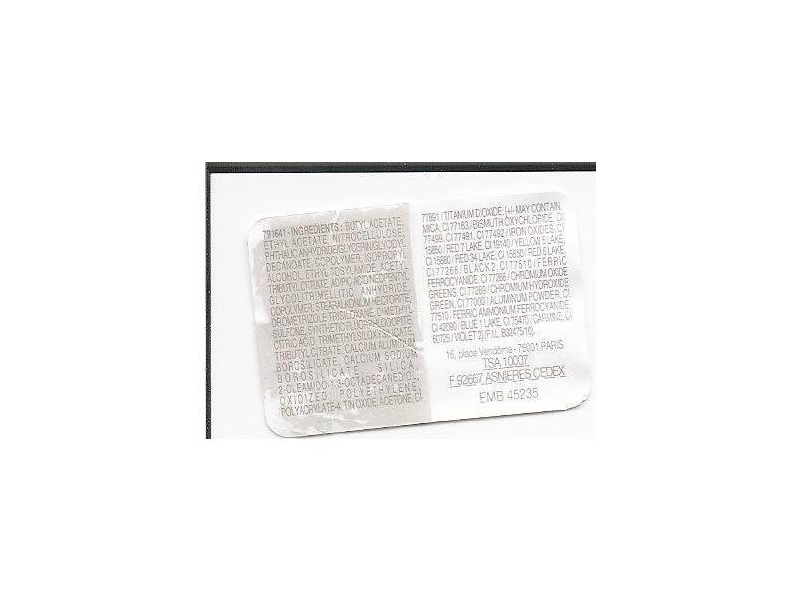 791641 - INGREDIENTS : BUTYL ACETATE,
ETHYL ACETATE, NITROCELLULOSE,
PHTHALIC ANHYDRIDE/GLYCERIN/GLYCIDYL
DECANOATE COPOLYMER, ISOPROPYL
ALCOHOL, ETHYL TOSYLAMIDE, ACETYL
TRIBUTYL CITRATE, ADIPIC ACID/NEOPENTYL
GLYCOL/TRIMELLITIC ANHYDRIDE
COPOLYMER, STEARALKONIUM HECTORITE,
DROMETRIZOLE TRISILOXANE, DIMETHYL
SULFONE, SYNTHETIC FLUORPHLOGOPITE,
CITRIC ACID, TRIMETHYLSILOXYSILICATE,
TRIBUTYL CITRATE, CALCIUM ALUMINUM
BOROSILICATE, CALCIUM SODIUM
BOROSILICATE, SILICA,
2-OLEAMIDO-1,3-OCTADECANEDIOL,
OXIDIZED POLYETHYLENE,
POLYACRYLATE-4, TIN OXIDE, ACETONE, CI
77891 / TITANIUM DIOXIDE, [+/- MAY CONTAIN,
MICA, CI 77163 / BISMUTH OXYCHLORIDE, CI
77499, CI 77491, CI 77492 / IRON OXIDES, CI
15850 / RED 7 LAKE, CI 19140 / YELLOW 5 LAKE,
CI 15880 / RED 34 LAKE, CI 15850 / RED 6 LAKE,
CI 77266 / BLACK 2, CI 77510 / FERRIC
FERROCYANIDE, CI 77288 / CHROMIUM OXIDE
GREENS, CI 77289 / CHROMIUM HYDROXIDE
GREEN, CI 77000 / ALUMINUM POWDER, CI
77510 / FERRIC AMMONIUM FERROCYANIDE,
CI 42090 / BLUE 1 LAKE, CI 75470 / CARMINE, CI
60725 / VIOLET 2] (F.I.L. B32475/10).
16, place Vendôme - 75001 PARIS
TSA 10007
F 92667 ASNIERES CEDEX
EMB 45235